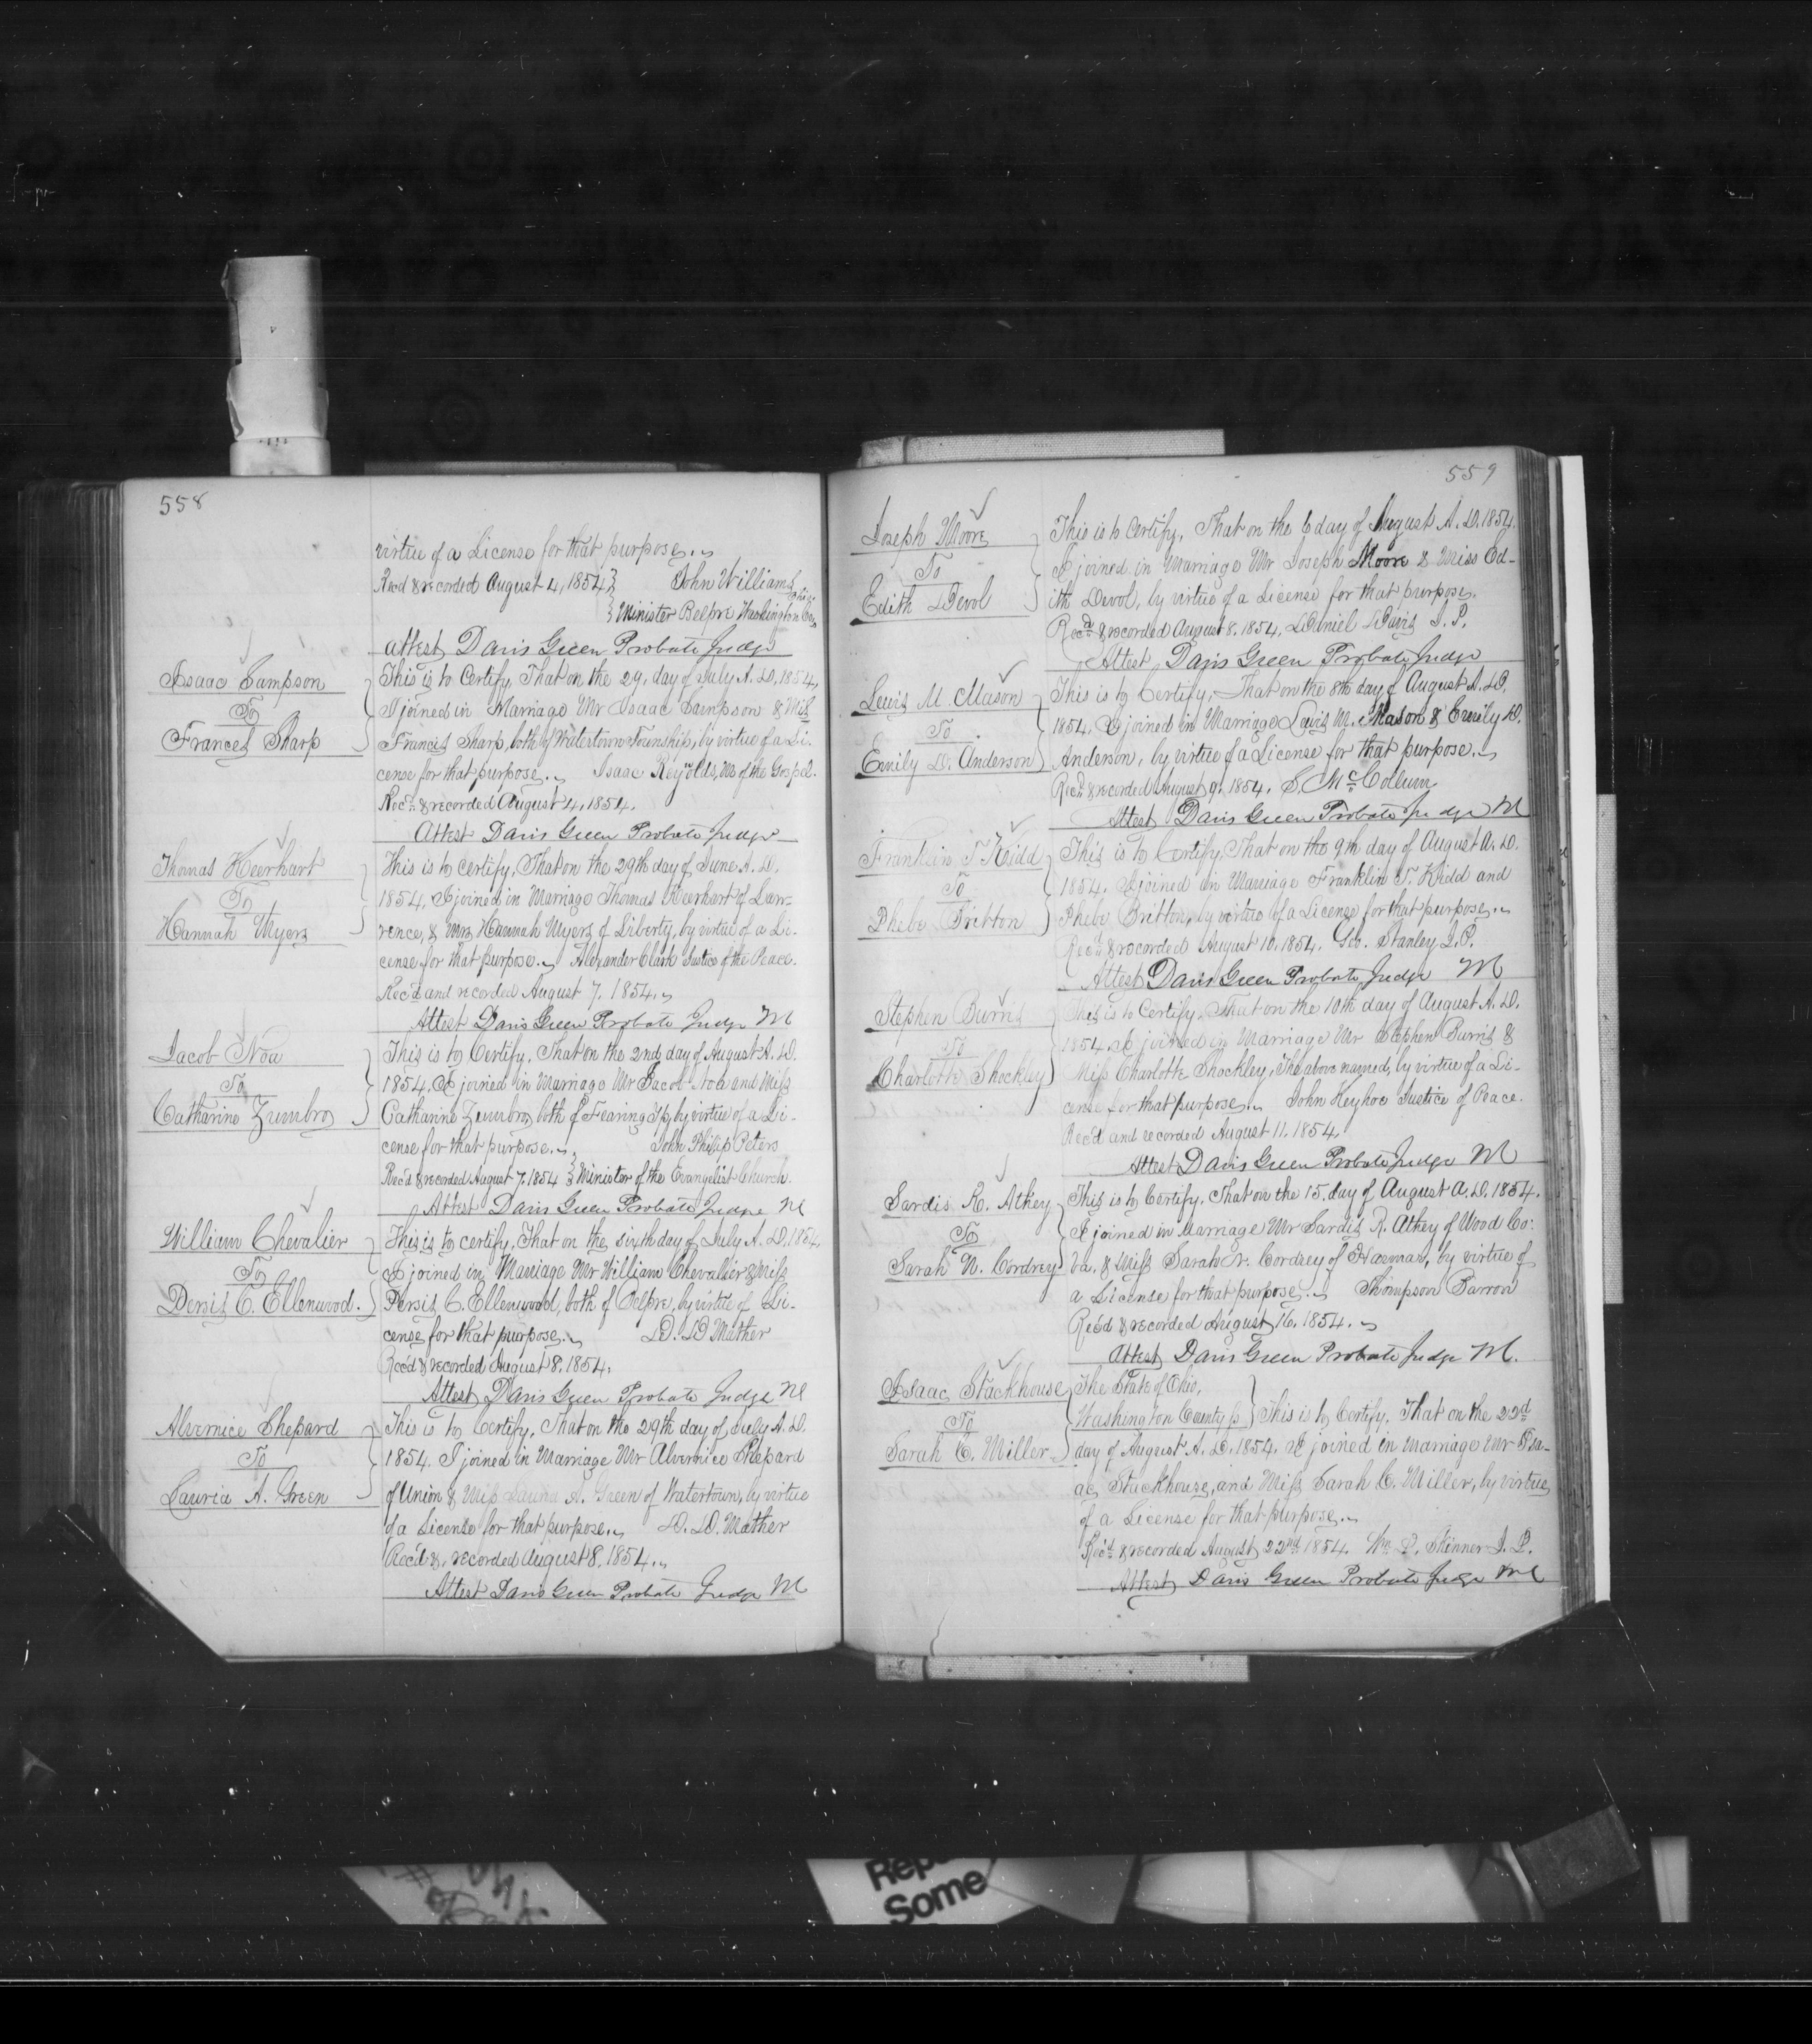 558
virtue of a License for that purpose.
Rec'd & recorded August 4, 1854 } John Williams
} Minister Belpre Washington Co. Ohio
Attest Davis Green Probate Judge
Isaac Sampson
To
Frances Sharp
This is to Certify, That on the 29, day of July A. D. 1854,
I joined in Marriage Mr Isaac Sampson & Miss
Frances Sharp, both of Watertown Township, by virtue of a Li-
cense for that purpose. Isaac Reynolds, M. of the Gospel.
Rec'd & recorded August 4, 1854.
Attest Davis Green Probate Judge
Thomas Heerhart
To
Hannah Myers
This is to certify, That on the 29th day of June A. D.
1854, I joined in Marriage Thomas Heerhart of Law-
rence, & Mrs Hannah Myers of Liberty, by virtue of a Li-
cense for that purpose. Alexander Clark Justice of the Peace.
Rec'd and recorded August 7. 1854.
Attest Davis Green Probate Judge M
Jacob Noa
To
Catharine Zumbro
This is to Certify, That on the 2nd day of August A. D.
1854, I joined in Marriage Mr Jacob Noa and Miss
Catharine Zumbro, both of Fearing Tp, by virtue of a Li-
cense for that purpose. John Philip Peters
Rec'd & recorded August 7. 1854 } Minister of the Evangelist Church.
Attest Davis Green Probate Judge M
William Chevalier
To
Persis C. Ellenwood.
This is to certify, That on the sixth day of July A. D. 1854,
I joined in Marriage Mr William Chevalier & Miss
Persis C. Ellenwood, both of Belpre, by virtue of Li-
cense for that purpose. D. D. Mather
Rec'd & recorded August 8. 1854.
Attest Davis Green Probate Judge M
Alvernice Shepard
To
Lauria A. Green
This is to Certify, That on the 29th day of July A. D.
1854. I joined in Marriage Mr Alvernice Shepard
of Union & Miss Lauria A. Green of Watertown, by virtue
of a License for that purpose. D. D. Mather
Rec'd &, recorded August 8. 1854.
Attest Davis Green Probate Judge M
559
Joseph Moore
To
Edith Devol
This is to Certify, That on the 6 day of August A. D. 1854.
I joined in Marriage Mr Joseph Moore & Miss Ed-
ith Devol, by virtue of a License for that purpose.
Rec'd & recorded August 8. 1854. Daniel Davis J. P.
Attest Davis Green Probate Judge
Lewis M. Mason
To
Emily D. Anderson
This is to Certify, That on the 8th day of August A. D.
1854, I joined in Marriage Lewis M. Mason & Emily D.
Anderson, by virtue of a License for that purpose.
Rec'd & recorded August 9. 1854. S. McCollum
Attest Davis Green Probate Judge M
Franklin T. Kidd
To
Phebe Britton
This is to Certify, That on the 9th day of August A. D.
1854. I joined in Marriage Franklin T. Kidd and
Phebe Britton, by virtue of a License for that purpose.
Rec'd & recorded August 10. 1854. Geo. Stanley J. P.
Attest Davis Green Probate Judge M
Stephen Burris
To
Charlotte Shockley
This is to Certify, That on the 10th day of August A. D.
1854. I joined in Marriage Mr Stephen Burris &
Miss Charlotte Shockley, the above named, by virtue of a Li-
cense for that purpose. John Heyhoe Justice of Peace.
Rec'd and recorded August 11. 1854.
Attest Davis Green Probate Judge M
Sardis R. Athey
To
Sarah N. Cordrey
This is to Certify, That on the 15. day of August A. D. 1854.
I joined in Marriage Mr Sardis R. Athey of Wood Co:
Va. & Miss Sarah N. Cordrey of Harmar, by virtue of
a License for that purpose. Thompson Barron
Rec'd & recorded August 16. 1854.
Attest Davis Green Probate Judge M.
Isaac Stackhouse
To
Sarah C. Miller
The State of Ohio,
Washington County ss } This is to Certify, That on the 22d
day of August A. D. 1854. I joined in Marriage Mr Isa-
ac Stackhouse, and Miss Sarah C. Miller, by virtue
of a License for that purpose.
Rec'd & recorded August 22nd 1854. Wm P. Skinner J. P.
Attest Davis Green Probate Judge M
Some